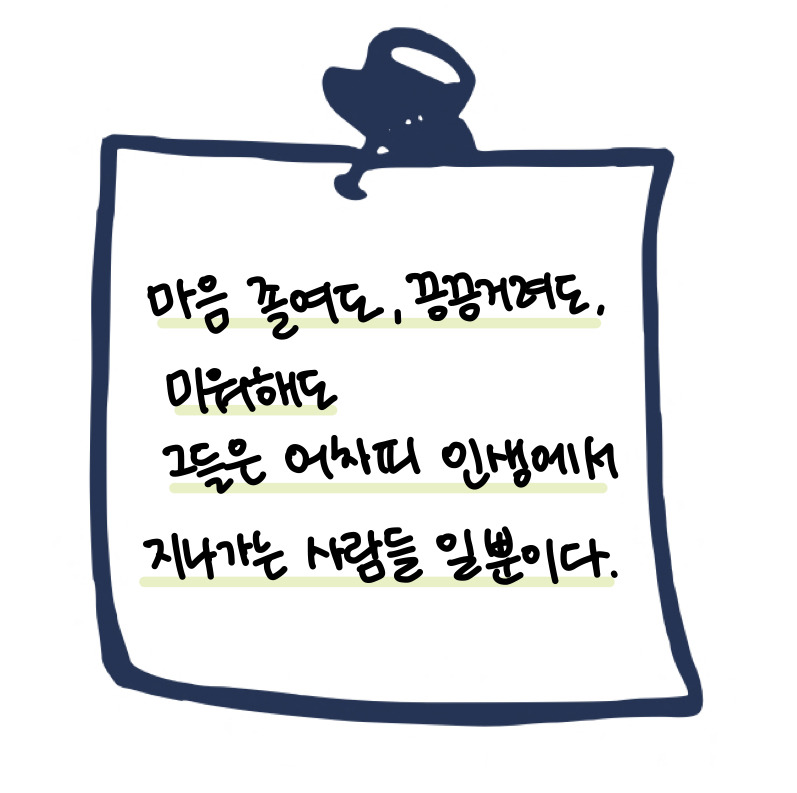 마음 졸여도, 끙끙거려도,
미워해도
그들은 어차피 인생에서
지나가는 사람들 일뿐이다.